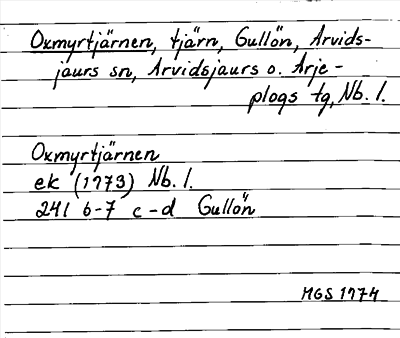 Oxmyrtjärnen, tjärn, Gullön, Arvids-
jaurs sn, Arvidsjaurs o. Arje-
plogs tg, Nb. l.
Oxmyrtjärnen
ek (1973) Nb. l.
24I 6-7 c-d Gullön
MGS 1974